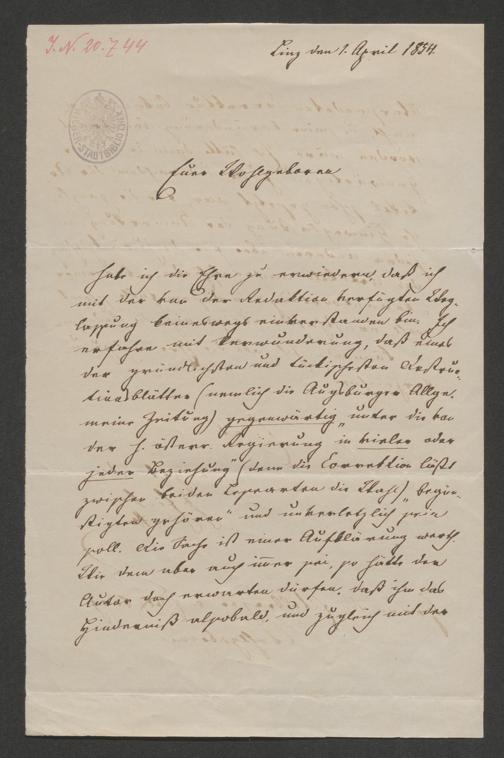 I. N. 20.744
Linz den 1. April 1854.
Euer Wohlgeboren
habe ich die Ehre zu erwiedern, daß ich
mit der von der Redaktion verfügten Weg-
lassung keineswegs einverstanden bin. Ich
erfahre mit Verwunderung, daß eines
der gründlichsten und tückischesten Destruc-
tionsblätter (nemlich die Augsburger Allge.
meine Zeitung) gegenwärtig „unter die von
der h. österr. Regierung in vieler oder
jeder Beziehung" (denn die Correktion läßt
zwischen beiden Lesearten die Wahl) „begün-
stigten gehören" und unverletzlich sein
soll. Die Sache ist einer Aufklärung werth.
Wie dem aber auch immer sei, so hätte der
Autor doch erwarten dürfen, daß ihm das
Hinderniß alsobald, und zugleich mit der